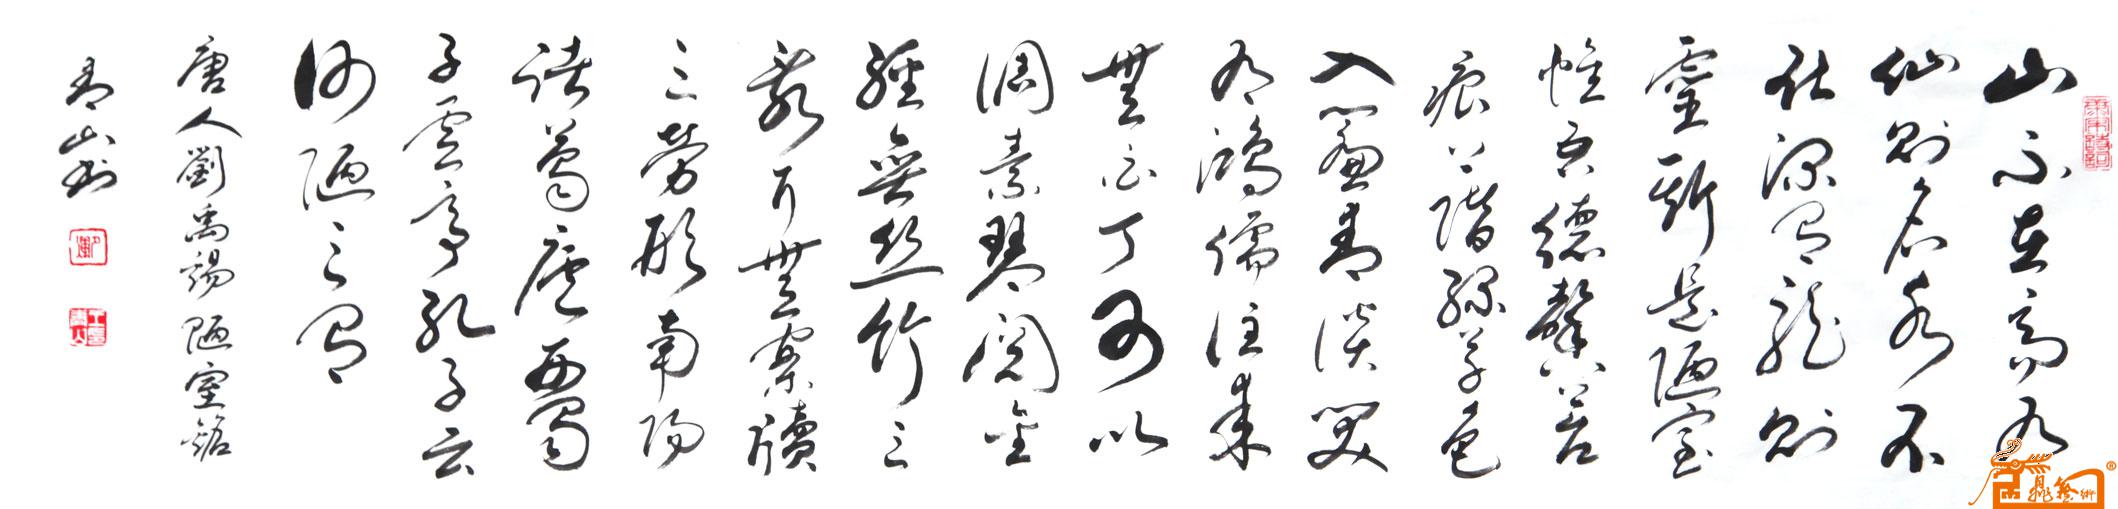 山不在高有
仙則名水不
在深有龍則
靈斯是陋室
惟吾德馨苔
痕上階綠草色
入簾青談笑
有鴻儒往來
無白丁可以
調素琴閱金
經無絲竹之
亂耳無案牘
之勞形南陽
諸葛廬西蜀
子雲亭孔子云
何陋之有
唐人劉禹錫陋室銘
青山書